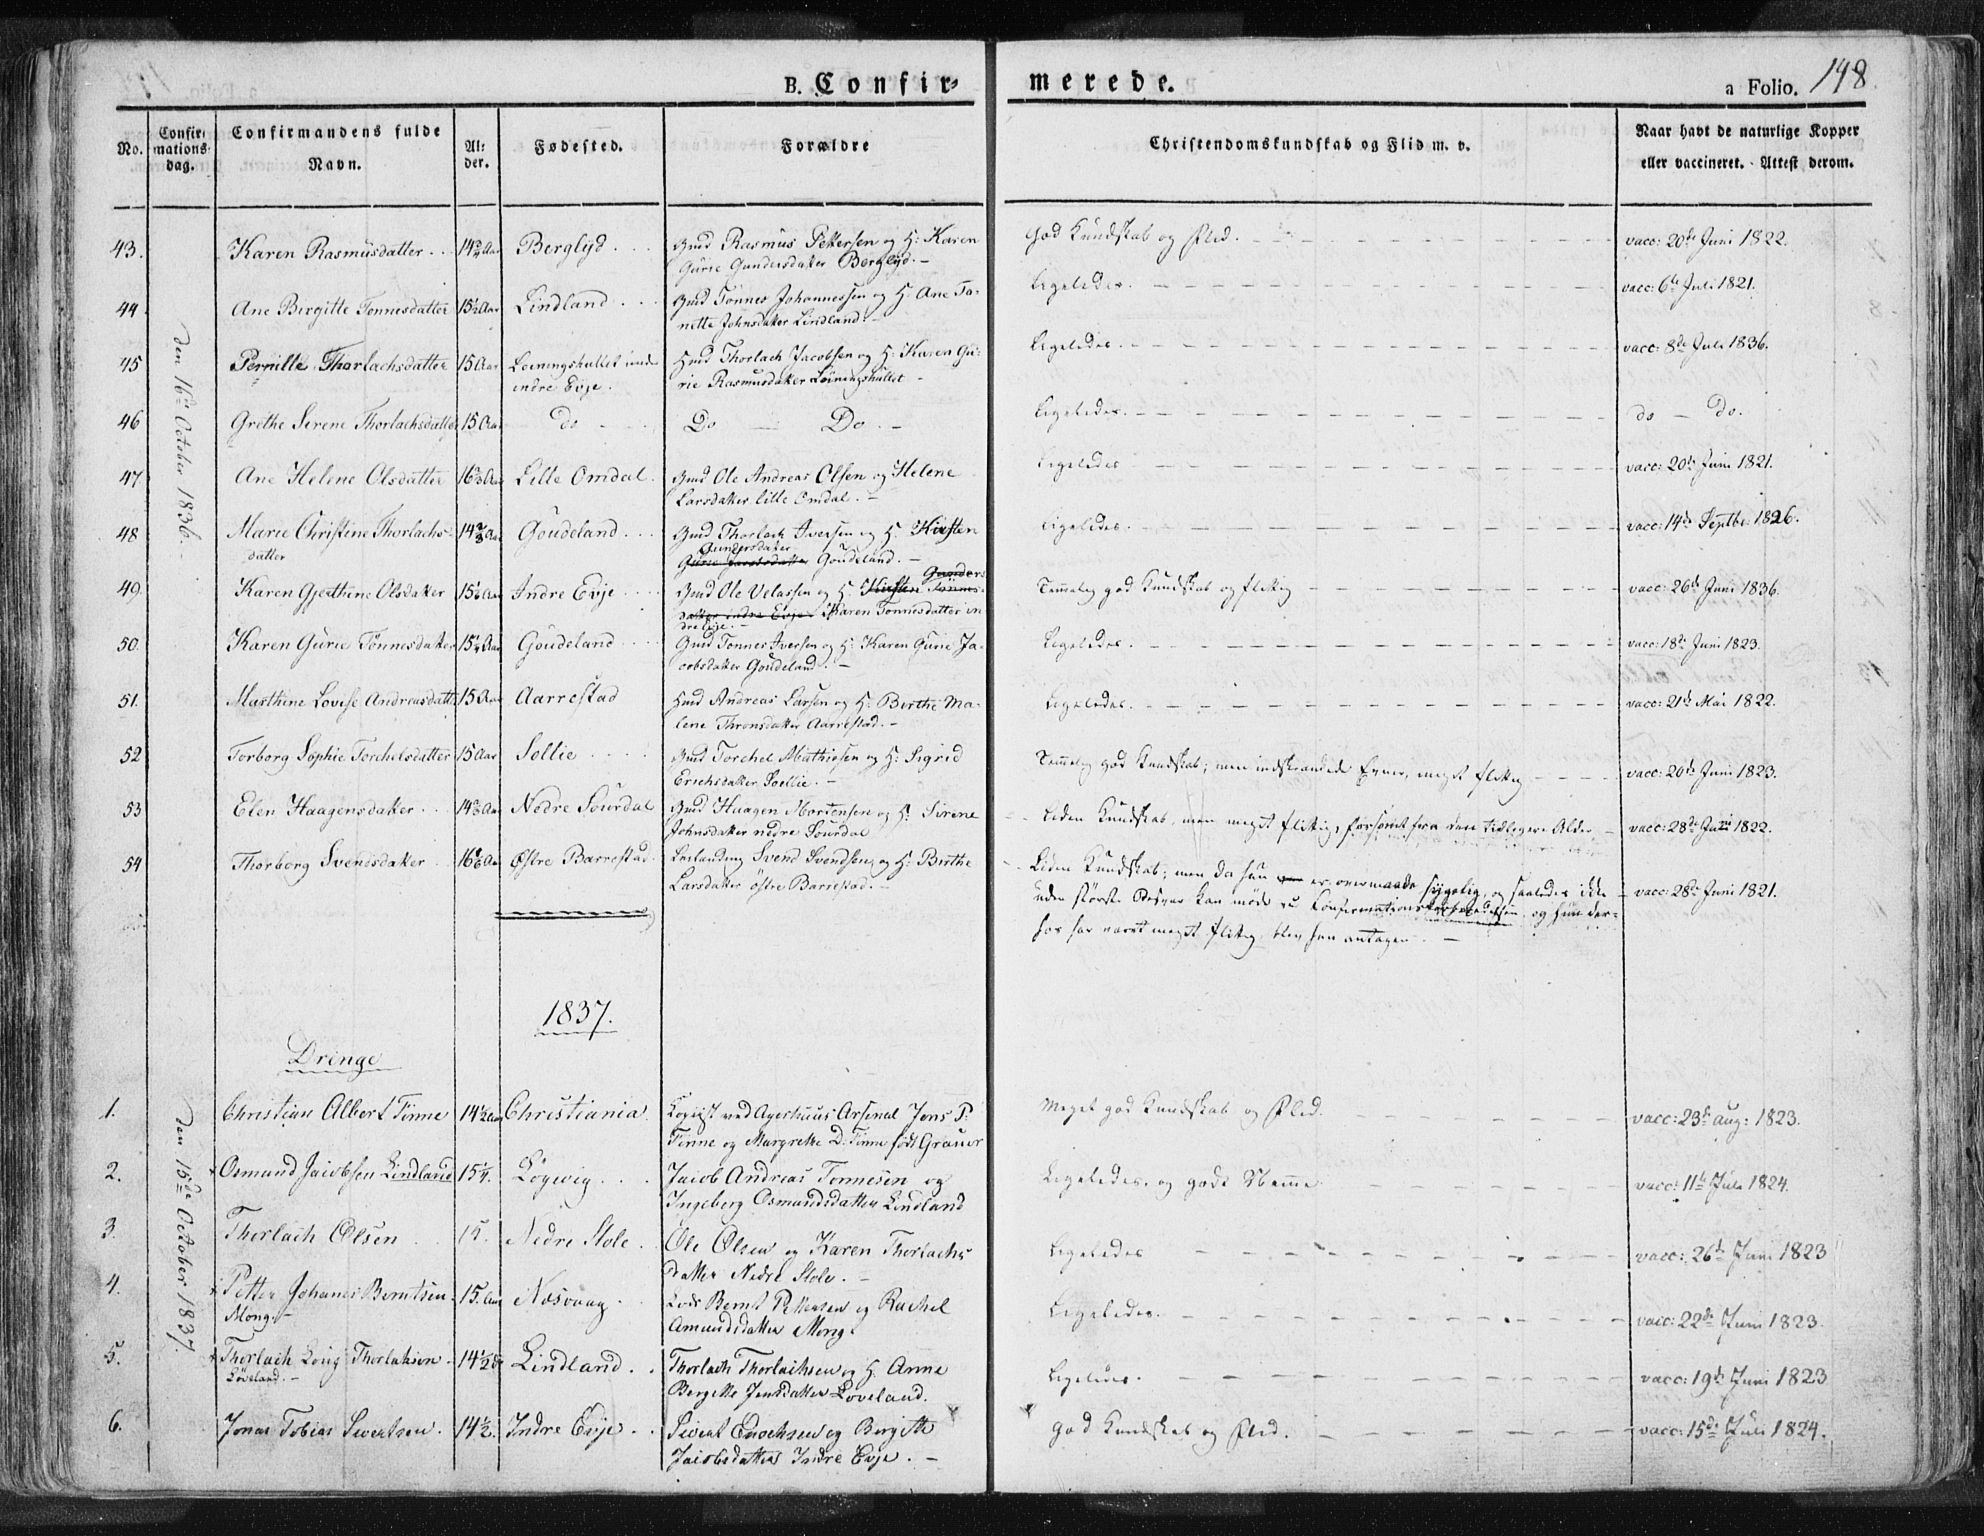 B. Confir-
merede.
a Folio. 148
No.
Confir-
mations
dag.
Confirmandens fulde
Navn.
Al-
der.
Fødested.
Forældre
Christendomskundskab og Flid m. v.
Naar havt de naturlige Kopper
eller vaccineret. Attest derom.
den 16de October 1836.
43. Karen Rasmusdatter 14 Aar Berglyd Gmd Rasmus Pettersen og H: Karen
Gurie Gundersdatter Berglyd.
God Kundskab og Flid. vacc: 20de Juni 1822.
44 Ane Birgitte Tonnesdatter 15½ Aar Lindland Gmd Tonnes Johannessen og H: Ane To-
nette Johnsdatter Lindland.
Ligeledes. vacc: 6te Juli 1821.
45 Pernille Thorlachsdatter 15 Aar Loiningshullet und
indre Evje.
Hmd Thorlach Jacobsen og H: Karen Gu-
rie Rasmusdatter Loiningshullet
Ligeledes. vacc: 8de Juli 1836.
46 Grethe Serene Thorlachsdatter 15 Aar do Do Do.
Ligeledes. do do.
47 Ane Helene Olsdatter 16 Aar Lille Omdal. Gmd Ole Andreas Olsen og Helene
Larsdatter lille Omdal.
Ligeledes vacc: 20de Juni 1821.
48 Marie Christine Thorlachs-
datter
14 Aar Goudeland Gmd Thorlach Iversen og H. Kirsten
Gundersdatter
Gurie Jacobsdatter Goudeland.
Ligeledes. vacc: 14de Septbr: 1826.
49. Karen Gjerthine Olsdatter 15 Aar Indre Evje Gmd Ole Velassen og H. Kirsten Tönnes-
datter indre Evje Karen Tonnesdatter in
dre Evje.
Temmelig god Kundskab og flittig vacc: 26de Juni 1836.
50. Karen Gurie Tönnesdatter 15¼ Aar Goudeland Gmd Tonnes Iversen og H: Karen Gurie Ja-
cobsdatter Goudeland.
Ligeledes. vacc: 18de Juni 1823.
51. Marthine Lovise Andreasdatt 15 Aar Aarrestad Hmd Andreas Larsen og H: Berthe Ma-
lene Thronsdatter Aarrestad.
Ligeledes. vacc: 21de Mai 1822.
52 Torborg Sophie Torchelsdatter 15 Aar Sollie Gmd Torchel Mathiesen og H: Sigrid
Erichsdatter Soellie.
Temmelig god Kundskab; men indskrænkede Evner, meget flittig vacc: 20de Juni 1823.
53 Elen Haagensdatter 14 Aar Nedre Sourdal Gmd Haagen Mortensen og H: Sirene
Johnsdatter nedre Sourdal
Liden Kundskab, men meget flittig, forsømt fra den tidligere Alder vacc: 28de Juni 1822.
54 Thorborg Svendsdatter 16 Aar Østre Barrestad Svend Svendsen og H: Berthe
Larsdatter östre Barrestad.
Liden Kundskab; men da hun er overmaade sygelig, og saaledes ikke
uden største Besvær kan møde til Confirmationsforberedelsen, og hun der-
hos har været meget flittig, blev hun antagen.
vacc: 28de Juni 1821.
1837.
Drenge
den 15de October 1837.
1. Christian Albert Tinne 14½ Aar Christiania. Copist ved Agerhuus Arsenal Jens P:
Tinne og Margrethe D: Tinne født Grauer
Meget god Kundskab og Flid. vacc: 23de Aug: 1823.
2. Osmund Jacobsen Lindland 15¼. Logevig Jacob Andreas Tonnesen og
Ingeborg Osmundsdatter Lindland
Ligeledes, og gode Nemme vacc: 11te Juli 1824.
3. Thorlach Olsen 15. Nedre Stole Ole Olsen og Karen Thorlachs
datter Nedre Stole.
Ligeledes vacc: 26de Juni 1823
4. Petter Johanes Berntsen
Mong.
15. Aar Nesvaag Lods Bernt Pettersen og Rachel
Amundsdatter Mong.
Ligeledes. vacc: 22de Juni 1823.
5. Thorlach Lovig Thorlaksen
Loveland.
14½ Lindland Thorlach Thorlachsen og H. Anne
Bergitte Jensdatter Loveland.
Ligeledes. vacc: 19de Juni 1823
6. Jonas Tobias Sivertsen 14½. Indre Evje Sivert Enochsen og Bergitte
Jacobsdatter Indre Evje.
God Kundskab og Flid. vacc: 15de Juli 1824.